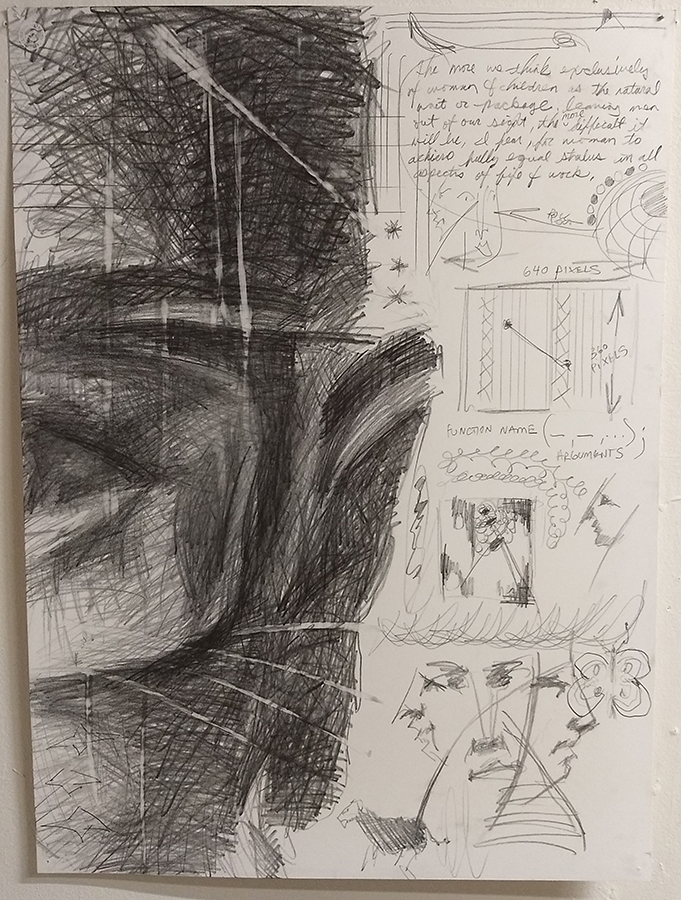 The more we think exclusively
of woman & children as the natural
unit or package, leaving men
out of our sight, the more difficult it
will be, I fear, for woman to
achieve fully equal status in all
aspects of life & work.
640 PIXELS
360
PIXELS
FUNCTION NAME (—, —, ...);
ARGUMENTS